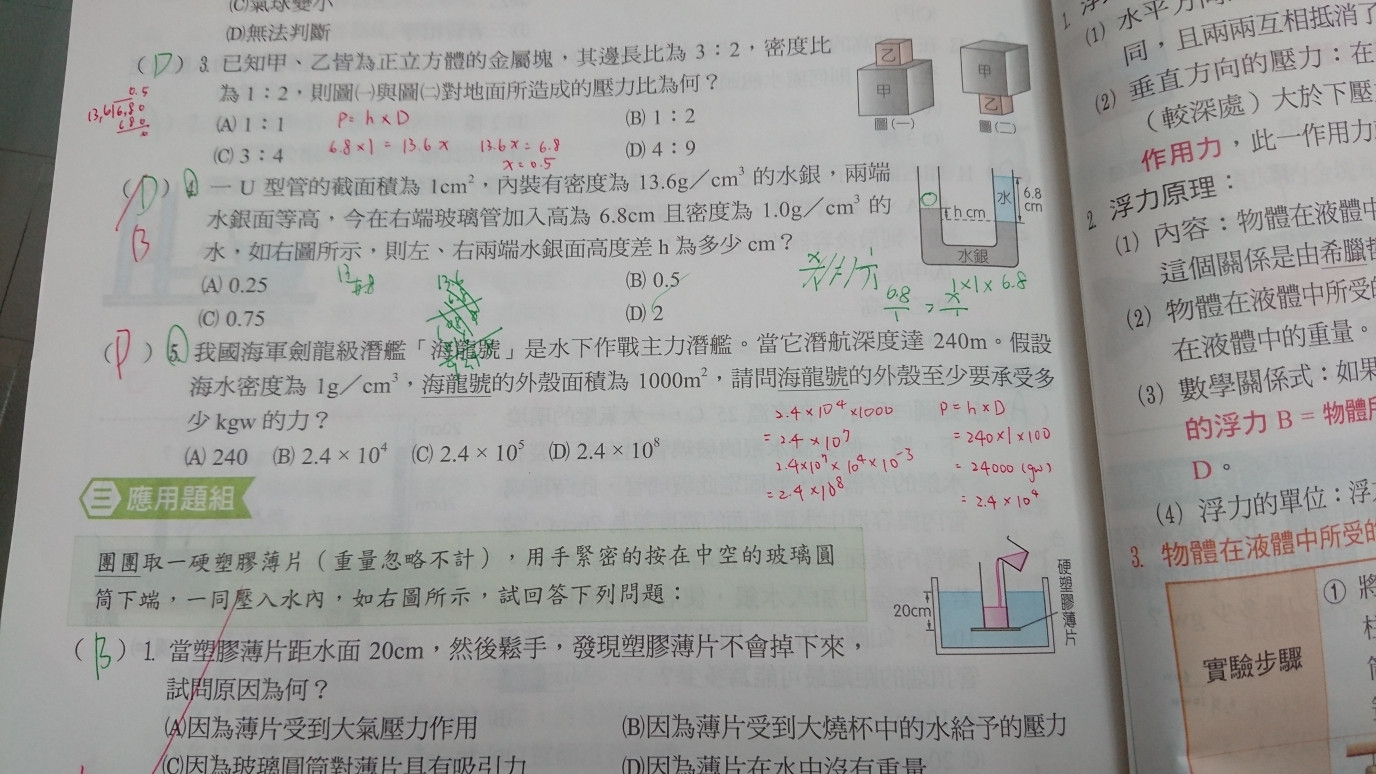 (C)氣球變小
(D)無法判斷
(D) 3. 已知甲、乙皆為正立方體的金屬塊，其邊長比為 3：2，密度比
為 1：2，則圖(一)與圖(二)對地面所造成的壓力比為何？
(A) 1：1
(B) 1：2
(C) 3：4
(D) 4：9
乙
甲
圖(一)
甲
乙
圖(二)
0.5
13.6
6.80
680
0
P = h × D
6.8 × 1 = 13.6 x
13.6 x = 6.8
x = 0.5
(D) 4. 一 U 型管的截面積為 1cm²，內裝有密度為 13.6g／cm³ 的水銀，兩端
B
水銀面等高，今在右端玻璃管加入高為 6.8cm 且密度為 1.0g／cm³ 的
水，如右圖所示，則左、右兩端水銀面高度差 h 為多少 cm？
(A) 0.25
(B) 0.5
(C) 0.75
(D) 2
水
6.8
cm
h cm
水銀
13.6
(D) 5. 我國海軍劍龍級潛艦「海龍號」是水下作戰主力潛艦。當它潛航深度達 240m。假設
海水密度為 1g／cm³，海龍號的外殼面積為 1000m²，請問海龍號的外殼至少要承受多
少 kgw 的力？
(A) 240 (B) 2.4 × 10⁴ (C) 2.4 × 10⁵ (D) 2.4 × 10⁸
2.4 × 10⁴ × 1000
= 2.4 × 10⁷
2.4 × 10⁷ × 10⁴ × 10⁻³
= 2.4 × 10⁸
P = h × D
= 240 × 1 × 100
= 24000 (gw)
= 2.4 × 10⁴
三 應用題組
團團取一硬塑膠薄片（重量忽略不計），用手緊密的按在中空的玻璃圓
筒下端，一同壓入水內，如右圖所示，試回答下列問題：
20cm
硬塑膠薄片
(B) 1. 當塑膠薄片距水面 20cm，然後鬆手，發現塑膠薄片不會掉下來，
試問原因為何？
(A)因為薄片受到大氣壓力作用
(B)因為薄片受到大燒杯中的水給予的壓力
(C)因為玻璃圓筒對薄片具有吸引力
(D)因為薄片在水中沒有重量
(1) 水平方向
同，且兩兩互相抵消了
(2) 垂直方向的壓力：在
（較深處）大於下壓
作用力，此一作用力
2. 浮力原理：
(1) 內容：物體在液體中
這個關係是由希臘哲
(2) 物體在液體中所受的
在液體中的重量。
(3) 數學關係式：如果
的浮力 B = 物體所
D。
(4) 浮力的單位：浮
3. 物體在液體中所受的
實驗步驟
① 將